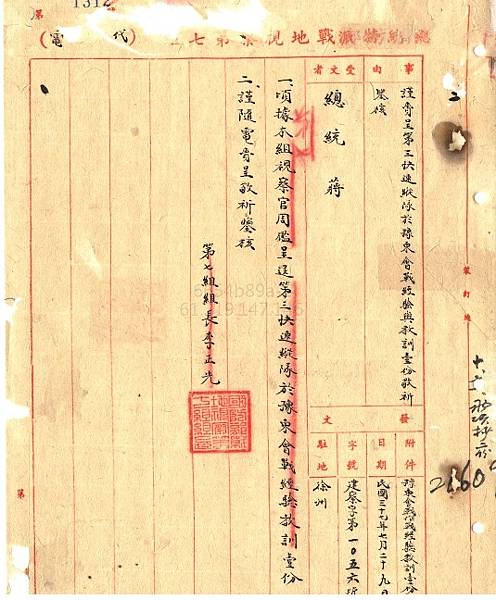 第 1312
(電 代) 總統特派戰地視察第七組
事由
謹賫呈第三快速縱隊於豫東會戰經驗與教訓壹份敬祈
鑒核
受文者
總統 蔣
一、頃據本組視察官周鑑呈送第三快速縱隊於豫東會戰經驗教訓壹份
二、謹隨電賫呈敬祈鑒核
第七組組長李正光
發文
附件 豫東會戰作戰經驗教訓壹份
日期 民國三十七年七月二十九日
字號 建察字第一〇五六號
駐地 徐州
裝訂線
第
2160